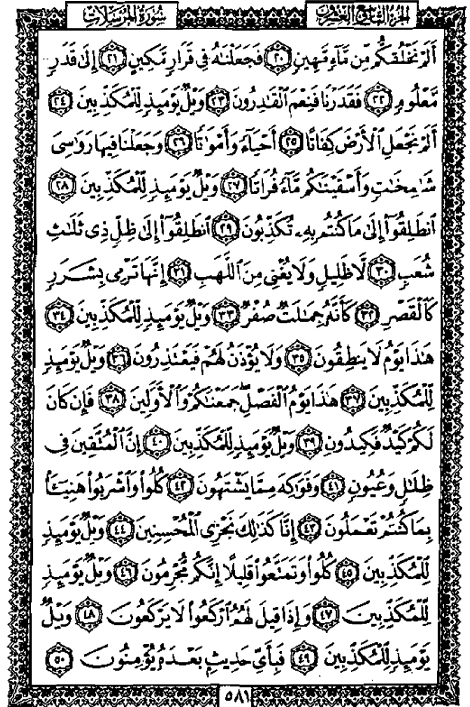 الجزء التاسع والعشرون سورة المرسلات
أَلَمْ نَخْلُقكُّم مِّن مَّآءٍ مَّهِينٍ ٢٠ فَجَعَلْنَٰهُ فِى قَرَارٍ مَّكِينٍ ٢١ إِلَىٰ قَدَرٍ
مَّعْلُومٍ ٢٢ فَقَدَرْنَا فَنِعْمَ ٱلْقَٰدِرُونَ ٢٣ وَيْلٌ يَوْمَئِذٍ لِّلْمُكَذِّبِينَ ٢٤
أَلَمْ نَجْعَلِ ٱلْأَرْضَ كِفَاتًا ٢٥ أَحْيَآءً وَأَمْوَٰتًا ٢٦ وَجَعَلْنَا فِيهَا رَوَٰسِىَ
شَٰمِخَٰتٍ وَأَسْقَيْنَٰكُم مَّآءً فُرَاتًا ٢٧ وَيْلٌ يَوْمَئِذٍ لِّلْمُكَذِّبِينَ ٢٨
ٱنطَلِقُوٓا۟ إِلَىٰ مَا كُنتُم بِهِۦ تُكَذِّبُونَ ٢٩ ٱنطَلِقُوٓا۟ إِلَىٰ ظِلٍّ ذِى ثَلَٰثِ
شُعَبٍ ٣٠ لَّا ظَلِيلٍ وَلَا يُغْنِى مِنَ ٱللَّهَبِ ٣١ إِنَّهَا تَرْمِى بِشَرَرٍ
كَٱلْقَصْرِ ٣٢ كَأَنَّهُۥ جِمَٰلَتٌ صُفْرٌ ٣٣ وَيْلٌ يَوْمَئِذٍ لِّلْمُكَذِّبِينَ ٣٤
هَٰذَا يَوْمُ لَا يَنطِقُونَ ٣٥ وَلَا يُؤْذَنُ لَهُمْ فَيَعْتَذِرُونَ ٣٦ وَيْلٌ يَوْمَئِذٍ
لِّلْمُكَذِّبِينَ ٣٧ هَٰذَا يَوْمُ ٱلْفَصْلِ جَمَعْنَٰكُمْ وَٱلْأَوَّلِينَ ٣٨ فَإِن كَانَ
لَكُمْ كَيْدٌ فَكِيدُونِ ٣٩ وَيْلٌ يَوْمَئِذٍ لِّلْمُكَذِّبِينَ ٤٠ إِنَّ ٱلْمُتَّقِينَ فِى
ظِلَٰلٍ وَعُيُونٍ ٤١ وَفَوَٰكِهَ مِمَّا يَشْتَهُونَ ٤٢ كُلُوا۟ وَٱشْرَبُوا۟ هَنِيٓـًٔۢا
بِمَا كُنتُمْ تَعْمَلُونَ ٤٣ إِنَّا كَذَٰلِكَ نَجْزِى ٱلْمُحْسِنِينَ ٤٤ وَيْلٌ يَوْمَئِذٍ
لِّلْمُكَذِّبِينَ ٤٥ كُلُوا۟ وَتَمَتَّعُوا۟ قَلِيلًا إِنَّكُم مُّجْرِمُونَ ٤٦ وَيْلٌ يَوْمَئِذٍ
لِّلْمُكَذِّبِينَ ٤٧ وَإِذَا قِيلَ لَهُمُ ٱرْكَعُوا۟ لَا يَرْكَعُونَ ٤٨ وَيْلٌ
يَوْمَئِذٍ لِّلْمُكَذِّبِينَ ٤٩ فَبِأَىِّ حَدِيثٍۭ بَعْدَهُۥ يُؤْمِنُونَ ٥٠
٥٨١